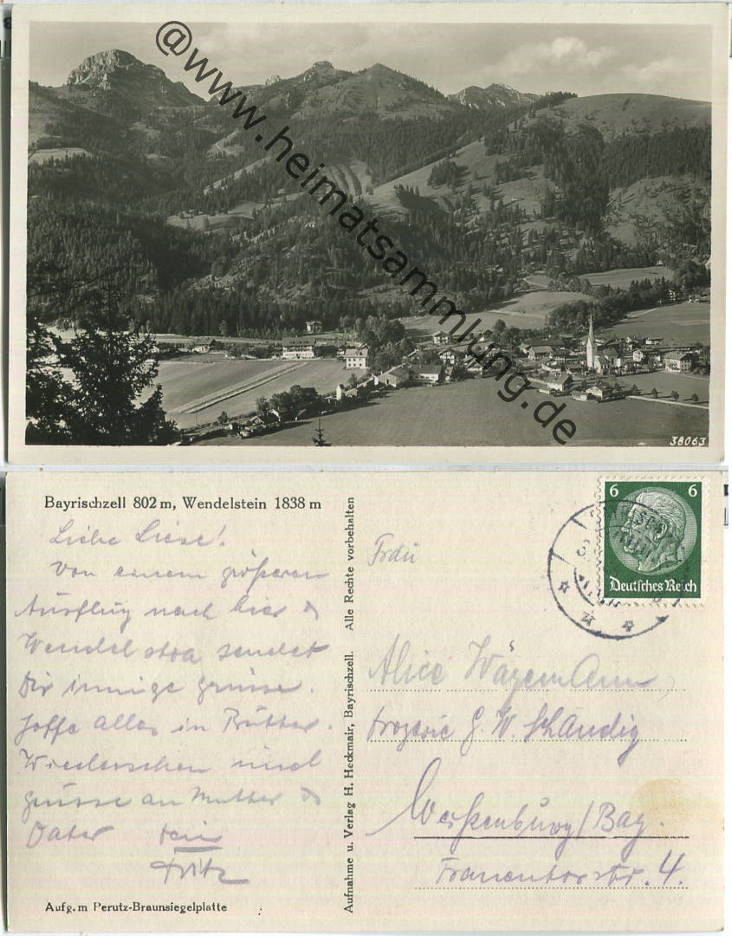 @www.heimatsammlung.de
38063
Bayrischzell 802 m, Wendelstein 1838 m
Liebe Liese!
Von einem größeren
Ausflug nach hier &
sendet
Dir innige Grüsse.
Hoffe alles in Butter.
Wiedersehen und
Grüsse an Mutter &
Vater Dein
Fritz
Aufg. m Perutz-Braunsiegelplatte
Aufnahme u. Verlag H. Heckmair, Bayrischzell. Alle Rechte vorbehalten
6 6
Deutsches Reich
Frau
Alice Wägemann
Drogerie G. W. Schäudig
Weissenburg/Bay.
Frauentorstr. 4.